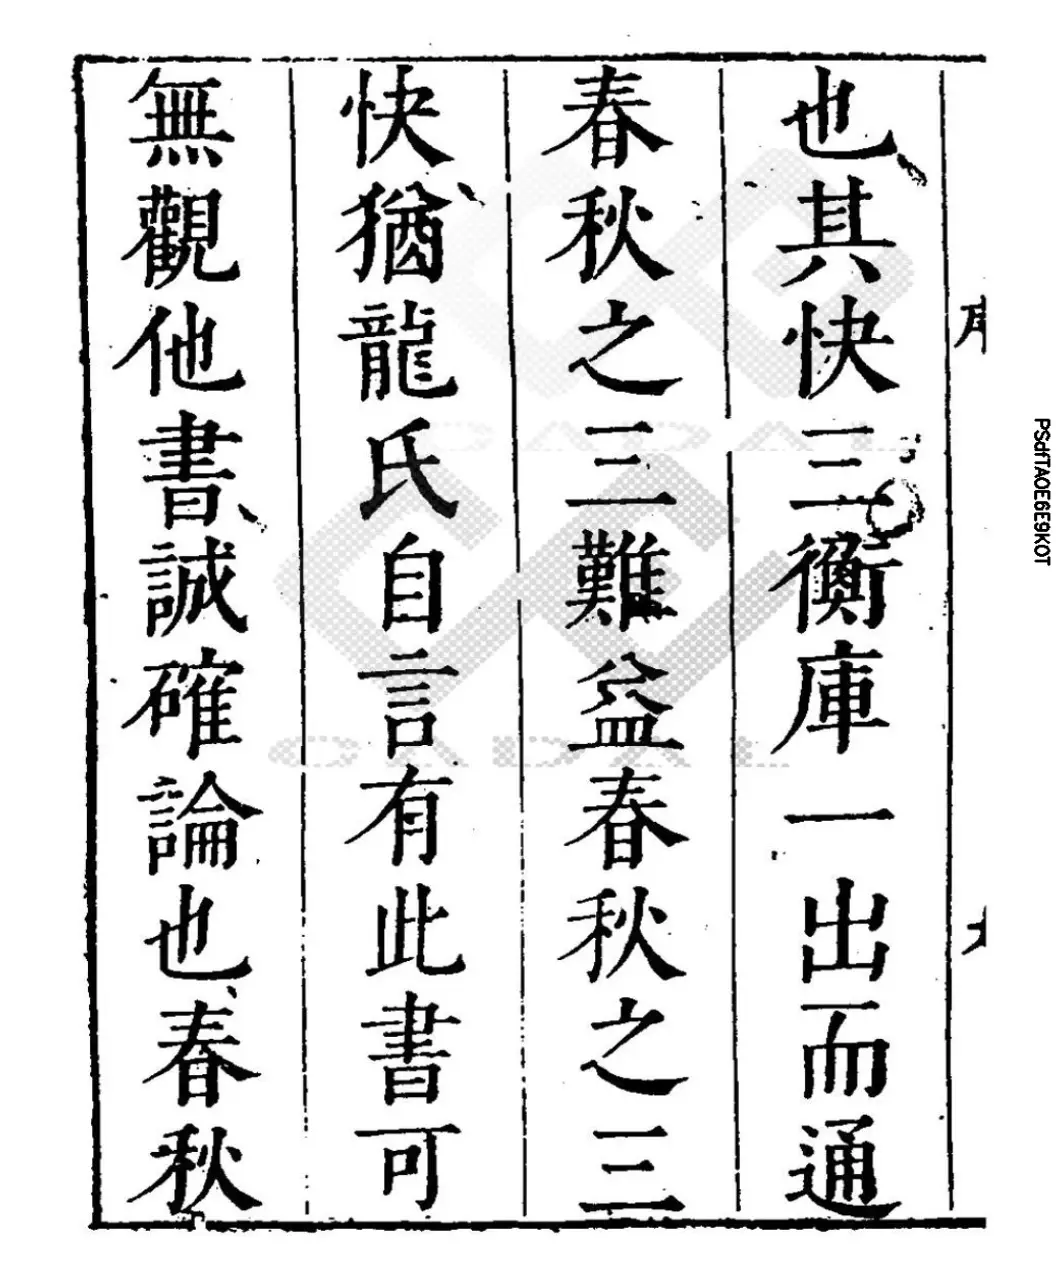 也其快三衡庫一出而通
春秋之三難益春秋之三
快猶龍氏自言有此書可
無觀他書誠確論也春秋
序
PSdfTAOE6E9KOT
CADAL